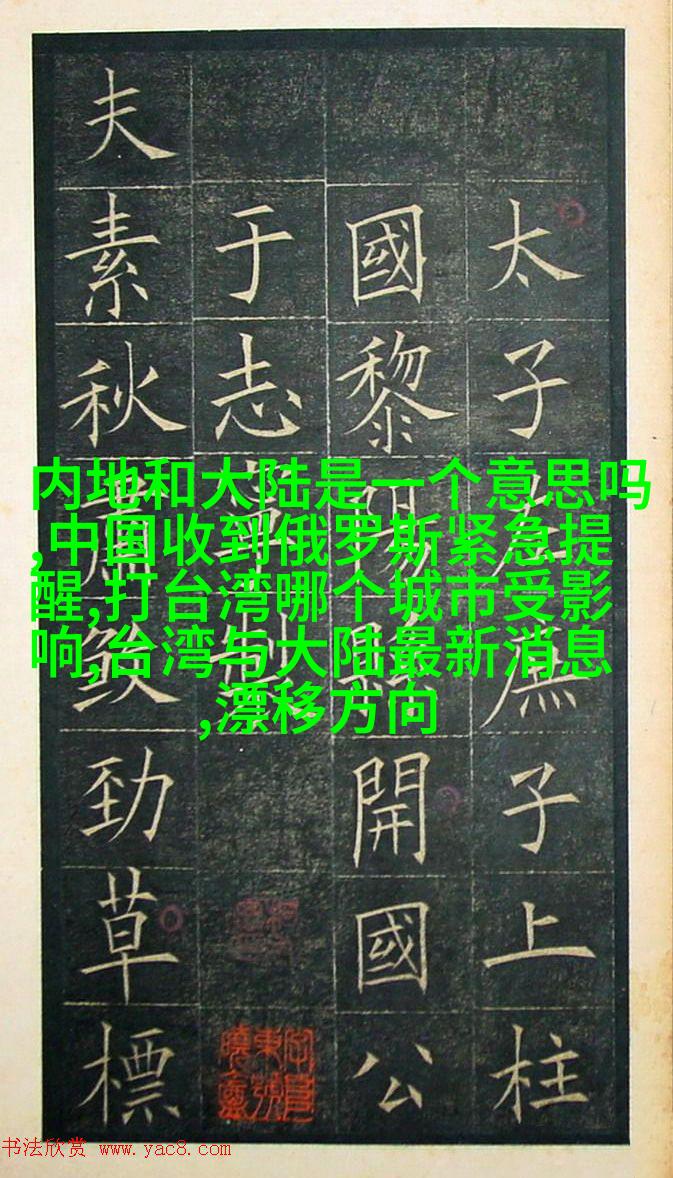 太子左庶子上柱
國黎陽縣開國公
于志寧製
夫素秋肅煞勁草標
内地和大陆是一个意思吗
,中国收到俄罗斯紧急提
醒,打台湾哪个城市受影
响,台湾与大陆最新消息
,漂移方向
书法欣赏 www.yac8.com